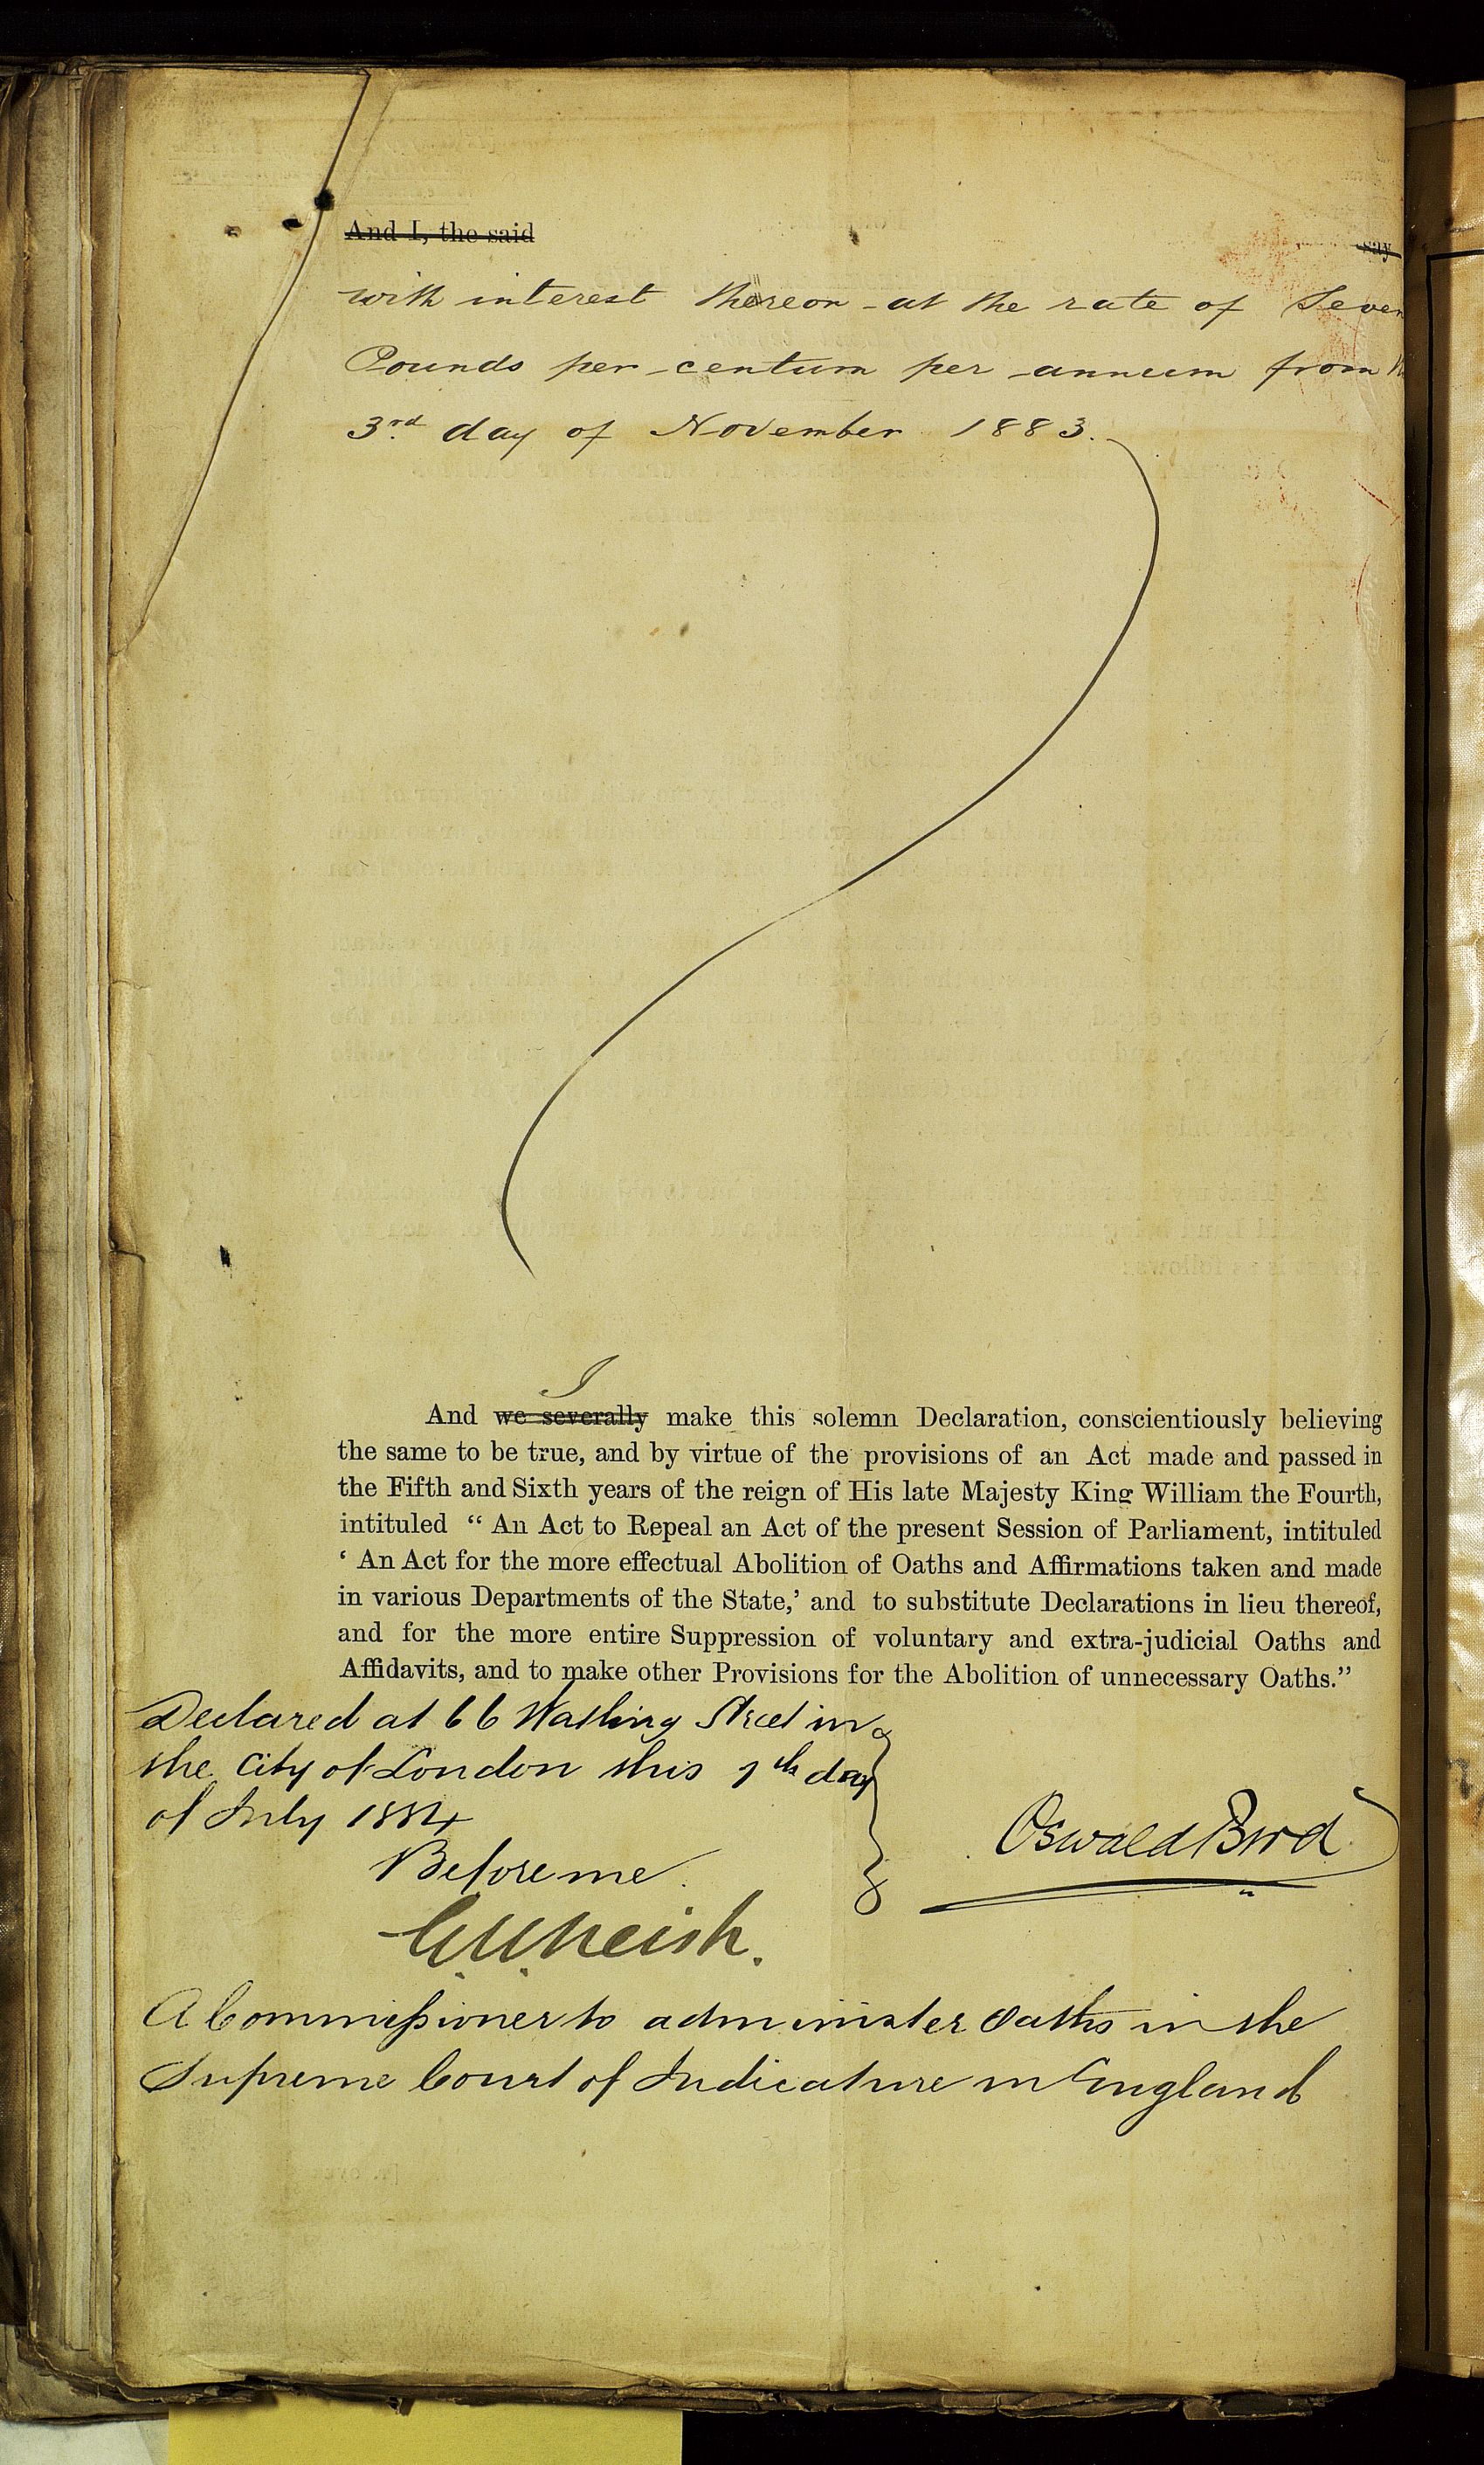 And I, the said say
with interest thereon at the rate of Seven
Pounds per centum per annum from
3rd day of November 1883.
I
And we severally make this solemn Declaration, conscientiously believing
the same to be true, and by virtue of the provisions of an Act made and passed in
the Fifth and Sixth years of the reign of His late Majesty King William the Fourth,
intituled “ An Act to Repeal an Act of the present Session of Parliament, intituled
‘ An Act for the more effectual Abolition of Oaths and Affirmations taken and made
in various Departments of the State,’ and to substitute Declarations in lieu thereof,
and for the more entire Suppression of voluntary and extra-judicial Oaths and
Affidavits, and to make other Provisions for the Abolition of unnecessary Oaths.”
Declared at 66 Watling Street in
the City of London this day
of July 1884
Before me
Oswald Bird
A Commissioner to administer Oaths in the
Supreme Court of Judicature in England